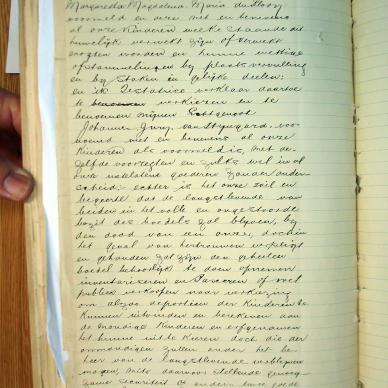 Margareda Magdalena Maria du Plooy
voormeld en over met en benevens
al onze Kinderen welke staande dit
huwelijk verwekt zijn of verwekt
mogten worden en hunne wettige
afstammelingen by plaatsvervulling
en by staken in gelijke deelen;
en ik Testatrice verklaar daartoe
te verkiezen en te
benoemen mijnen Echtgenoot
Johannes Jurg. van Stryngaard, voor-
noemd met en benevens al onze
Kinderen als voormeld is, met de-
zelfde voorregten en zulks wel in al
onze nalatene goederen zonder onder-
scheid; echter is het onze wil en
begeerte dat de langstlevende van
beiden in het volle en ongestoorde
bezit des boedels zal blijven, by
den dood van een onzer, doch in
het geval van hertrouwen verpligt
en gehouden zal zijn den geheelen
boedel behoorlijk te doen opnemen
inventariseren en Taxeren of wel
publiek verkoopen naar verkiezing
om alzoo de portien der Kinderen te
kunnen uitvinden en berekenen aan
de mondige Kinderen en erfgenamen
het hunne uit te Keeren doch die der
onmondigen zullen onder het be-
heer van de langstlevende verblyven
mogen, mits daarvoor stellende genoeg-
zame securiteit &amp; anders twee goede